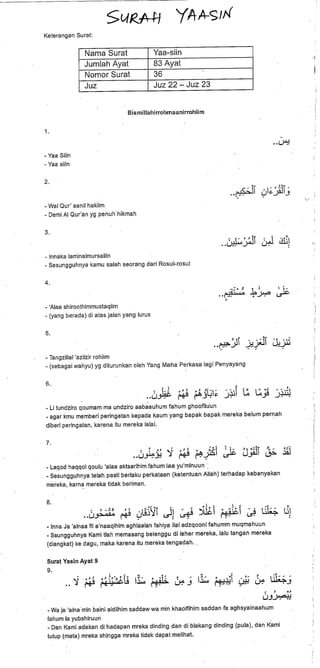 SURAH YAASIN
Keterangan Surat:
Nama Surat Yaa-siin
Jumlah Ayat 83 Ayat
Nomor Surat 36
Juz Juz 22 – Juz 23
Bismillahirrohmaanirrohiim
1.
يسٓ..
- Yaa Siin
- Yaa siin
2.
وَٱلْقُرْءَانِ ٱلْحَكِيمِ..
- Wal Qur' aanil hakiim
- Demi Al Qur'an yg penuh hikmah
3.
إِنَّكَ لَمِنَ ٱلْمُرْسَلِينَ..
- Innaka laminalmursaliin
- Sesungguhnya kamu salah seorang dari Rosul-rosul
4.
عَلَىٰ صِرَٰطٍ مُّسْتَقِيمٍ..
- 'Alaa shiroothimmustaqiim
- (yang berada) di atas jalan yang lurus
5.
تَنزِيلَ ٱلْعَزِيزِ ٱلرَّحِيمِ..
- Tangziilal 'aziizir rohiim
- (sebagai wahyu) yg diturunkan oleh Yang Maha Perkasa lagi Penyayang
6.
لِتُنذِرَ قَوْمًا مَّا أُنذِرَ ءَابَاؤُهُمْ فَهُمْ غَٰفِلُونَ..
- Li tundziro qoumam ma undziro aabaauhum fahum ghoofiluun
- agar kmu memberi peringatan kepada kaum yang bapak bapak mereka belum pernah
diberi peringatan, karena itu mereka lalai.
7.
لَقَدْ حَقَّ ٱلْقَوْلُ عَلَىٰ أَكْثَرِهِمْ فَهُمْ لَا يُؤْمِنُونَ..
- Laqod haqqol qoulu 'alaa aktsarihim fahum laa yu'minuun
- Sesungguhnya telah pasti berlaku perkataan (ketentuan Allah) terhadap kebanyakan
mereka, karna mereka tidak beriman.
8.
إِنَّا جَعَلْنَا فِي أَعْنَٰقِهِمْ أَغْلَٰلًا فَهِيَ إِلَى ٱلْأَذْقَانِ فَهُم مُّقْمَحُونَ..
- Inna Ja 'alnaa fii a'naaqihim aghlaalan fahiya ilal adzqooni fahumm muqmahuun
- Ssungguhnya Kami tlah memasang belenggu di leher mereka, lalu tangan mereka
(diangkat) ke dagu, maka karena itu mereka tengadah.
Surat Yasin Ayat 9
9.
وَجَعَلْنَا مِنۢ بَيْنِ أَيْدِيهِمْ سَدًّا وَ مِنْ خَلْفِهِمْ سَدًّا فَأَغْشَيْنَٰهُمْ فَهُمْ لَا ..
يُبْصِرُونَ
- Wa ja 'alna min baini aidihim saddaw wa min khaolfihim saddan fa aghsyainaahum
fahum la yubshiruun
- Dan Kami adakan di hadapan mreka dinding dan di blekang dinding (pula), dan Kami
tutup (mata) mreka shingga mreka tidak dapat melihat.